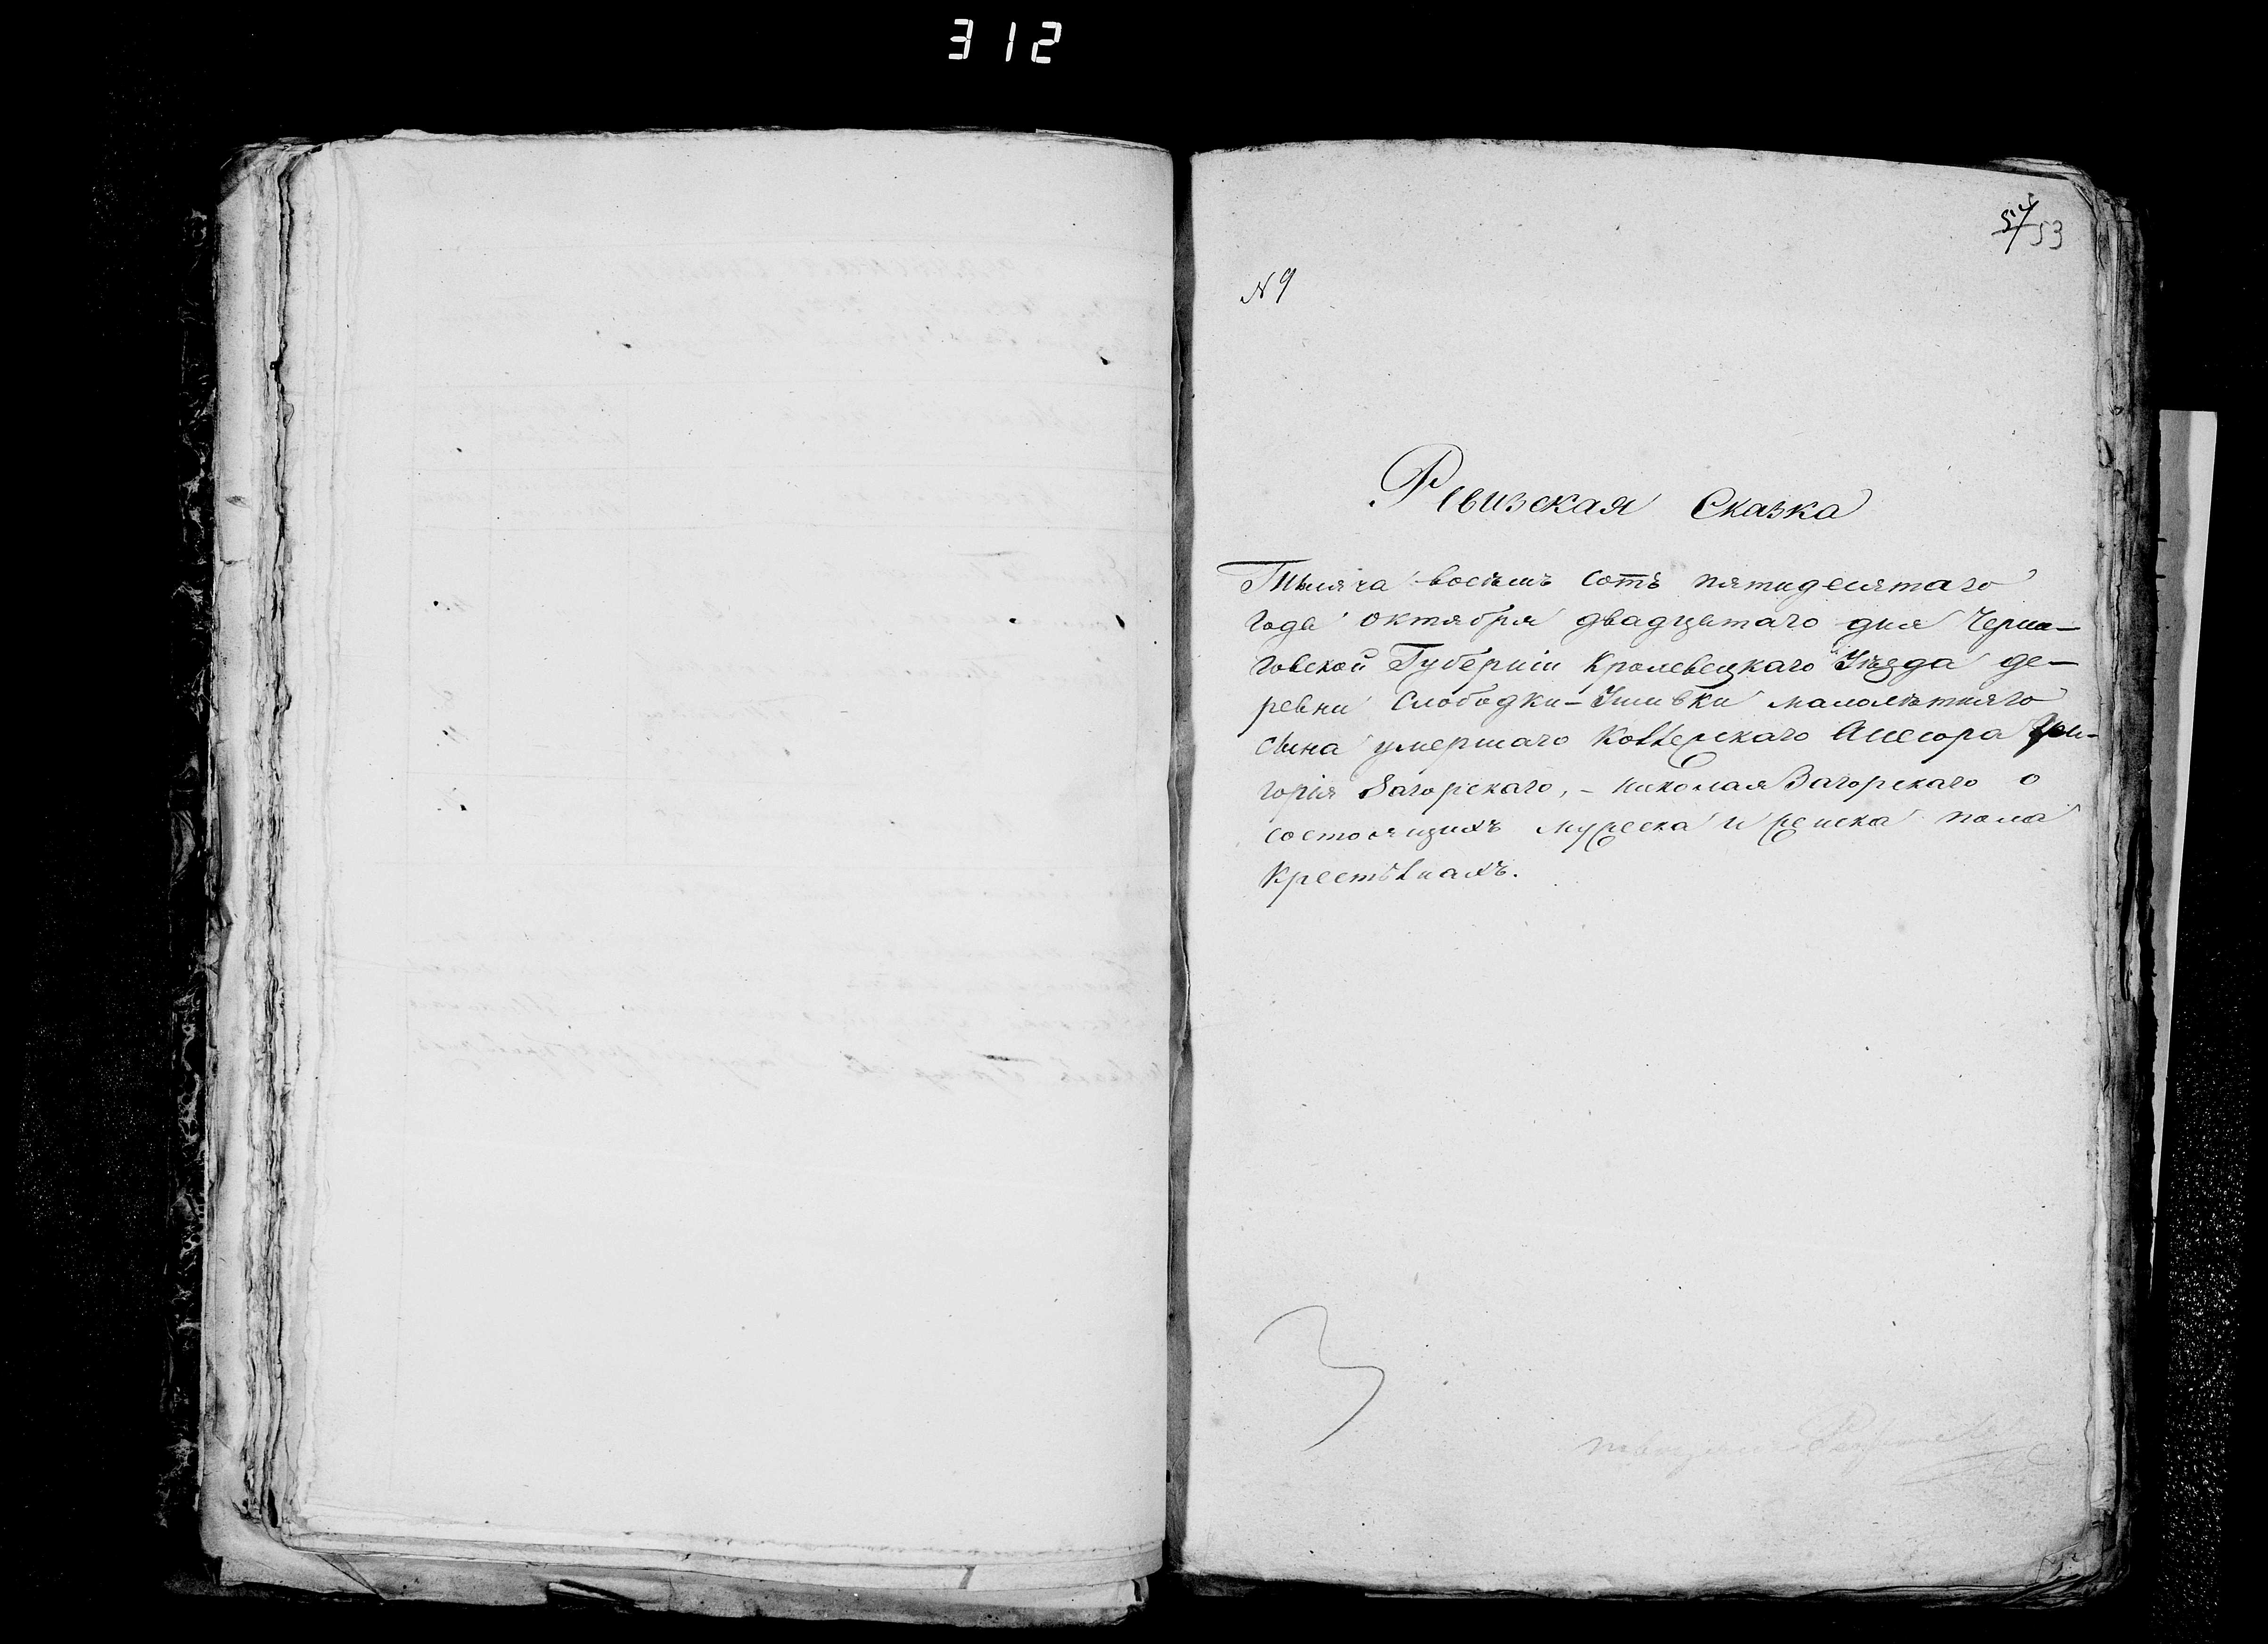 312
54 53
№ 9
Ревизская Сказка
Тысяча восемь сотъ пятидесятаго
года октября двадцатаго дня Черни-
говской Губерніи Кролевецкаго Уѣзда де-
ревни Слободки-Ушивки малолѣтняго
сына умершаго Коллежскаго Асесора Гри-
горія Загорскаго, - Николая Загорскаго о
состоящихъ мужеска и женска пола
крестьянахъ.